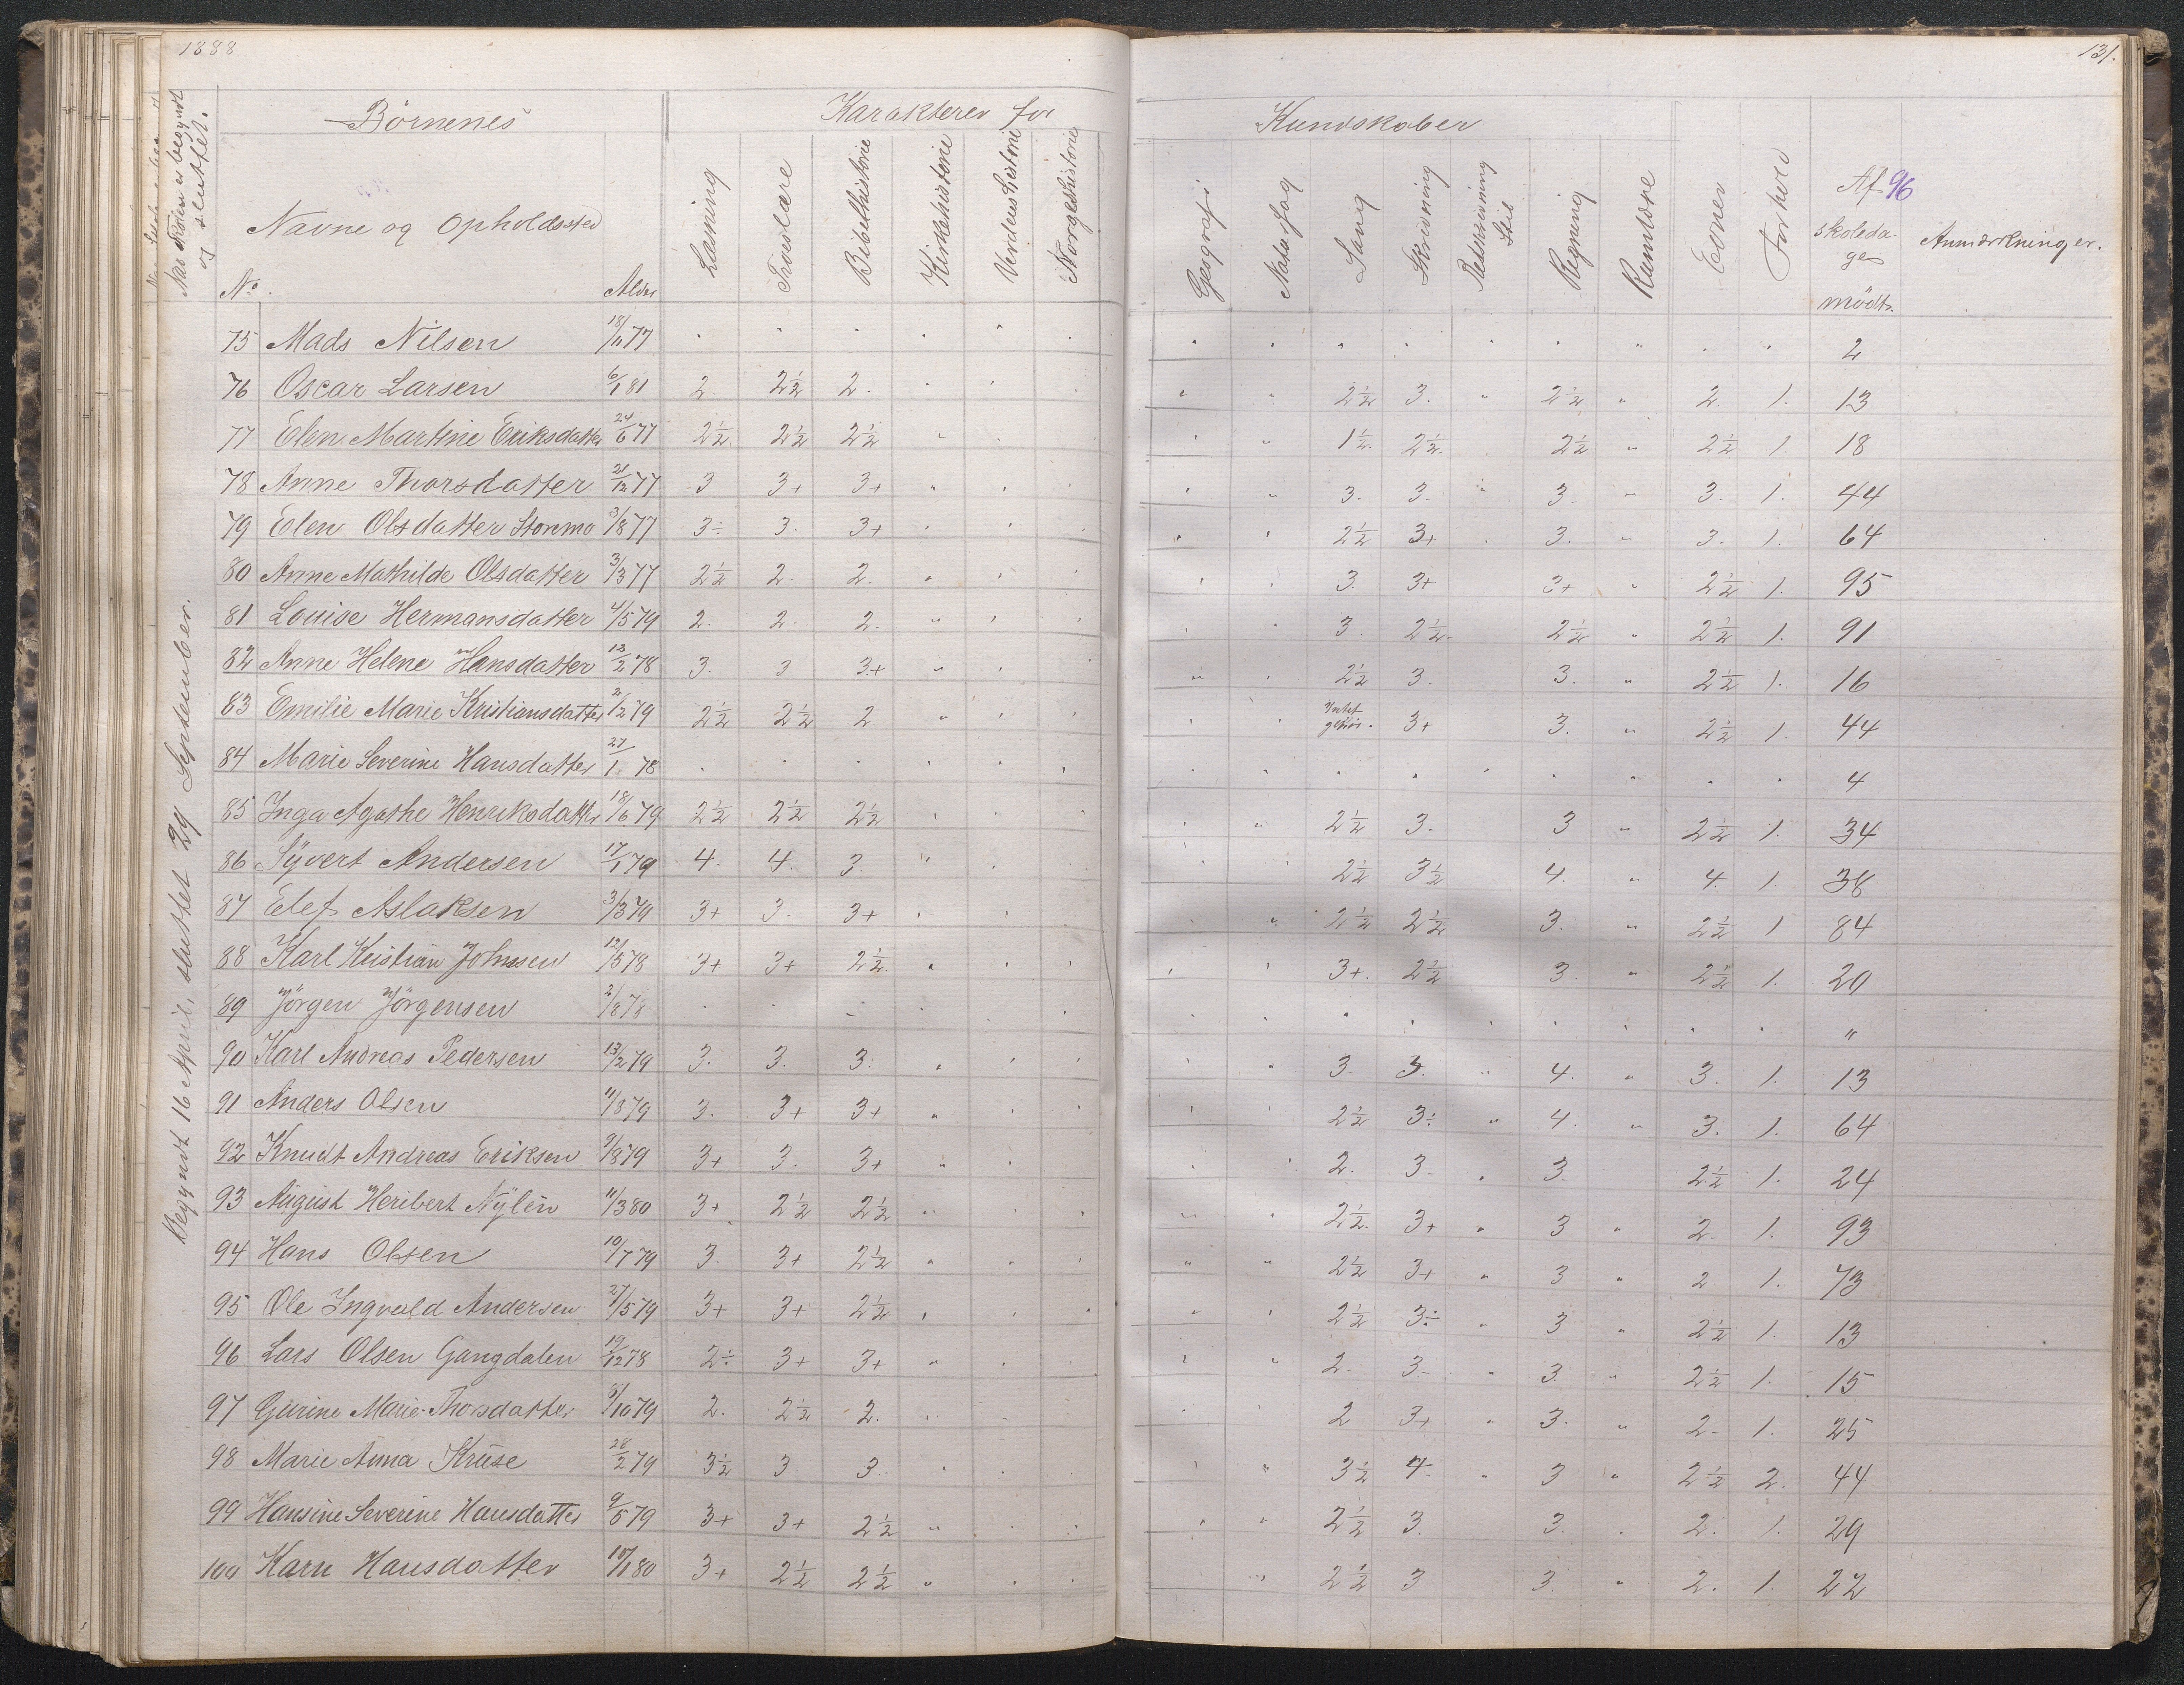 1888
131.
Naar Skolen er begyndt
og sluttet.
Begyndt 16 April, sluttet 29 September.
Børnenes
Karakterer for
Kundskaber
No
Navne og Opholdssted
Alder
Læsning
Troeslære
Bibelhistorie
Kirkehistorie
Verdenshistorie
Norgeshistorie
Geografi
Sang
Skrivning
Retskrivning
Stil
Regning
Rumlære
Evner
Forhold
Af 96
skoleda-
ge
mödt.
Anmærkninger.
75 Mads Nilsen 18/11 77 " " " " " " " " " " " " " " " 2
76 Oscar Larsen 6/1 81 2. 2½ 2. " " " " " 2½ 3. " 2½ " 2 1. 13
77 Elen Martine Eriksdatter 24/6 77 2½ 2½ 2½ " " " " " 1½ 2½ 2½ " 2½ 1. 18
78 Anne Thorsdatter 21/12 77 3 3+ 3+ " " " " 3. 3. " 3. " 3. 1. 44
79 Elen Olsdatter Stormo 3/8 77 3÷ 3. 3+ " " " " " 2½ 3+ " 3. " 3. 1. 64
80 Anne Mathilde Olsdatter 3/3 77 2½ 2. 2. " " " " " 3. 3+ 3+ " 2½ 1. 95
81 Louise Hermansdatter 4/5 79 2. 2. 2. " " " " " 3. 2½ 2½ " 2½ 1. 91
82 Anne Helene Hansdatter 12/2 78 3. 3 3+ " " " " 2½ 3. 3. " 2½ 1. 16
83 Emilie Marie Kristiansdatter 2/2 79 2½ 2½ 2 " " " " " Intet gehör. 3+ 3. " 2½ 1. 44
84 Marie Severine Hansdatter 27/1 78 " " " " " " " " " " " " " " " 4
85 Inga Agathe Henriksdatter 18/6 79 2½ 2½ 2½ " " " " 2½ 3. 3 " 2½ 1. 34
86 Syvert Andersen 17/1 79 4. 4. 3. " " " " 2½ 3½ 4. " 4. 1. 38
87 Elef Aslaksen 3/3 79 3+ 3. 3+ " " " " 2½ 2½ 3. " 2½ 1 84
88 Karl Kristian Johnsen 12/5 78 3+ 3+ 2½ " " " " " 3+. 2½ 3. " 2½ 1. 20
89 Jörgen Jörgensen 2/8 78 " " " " " " " " " " " " " " "
90 Karl Andreas Pedersen 13/2 79 3. 3. 3. " " " " " 3. 3. " 4. " 3. 1. 13
91 Anders Olsen 11/8 79 3. 3+ 3+ " " " " " 2½ 3÷ " 4. " 3. 1. 64
92 Knudt Andreas Eriksen 9/8 79 3+ 3. 3+ " " " " 2. 3. " 3. 2½ 1. 24
93 August Heribert Nylén 11/3 80 3+ 2½ 2½ " " " " " 2½ 3+ " 3 " 2. 1. 93
94 Hans Olsen 10/7 79 3. 3+ 2½ " " " " " 2½ 3+ " 3 " 2 1. 73
95 Ole Ingvald Andersen 27/5 79 3+ 3+ 2½ " " " " " 2½ 3÷ " 3 " 2½ 1. 13
96 Lars Olsen Gangdalen 19/12 78 2÷ 3+ 3+ " " " " " 2. 3. " 3. " 2½ 1. 15
97 Gurine Marie Thorsdatter 5/10 79 2. 2½ 2. " " " " 2 3+ " 3. " 2. 1. 25
98 Marie Anna Kruse 28/2 79 3½ 3 3. " " " " " 3½ 4. " 3 " 2½ 2. 44
99 Hansine Severine Hansdatter 9/5 79 3+ 3+ 2½ " " " " " 2½ 3. 3. " 2. 1. 29
100 Karn Hansdatter 80 3+ 2½ 2½ " " " " 2½ 3 3. " 2. 1. 22